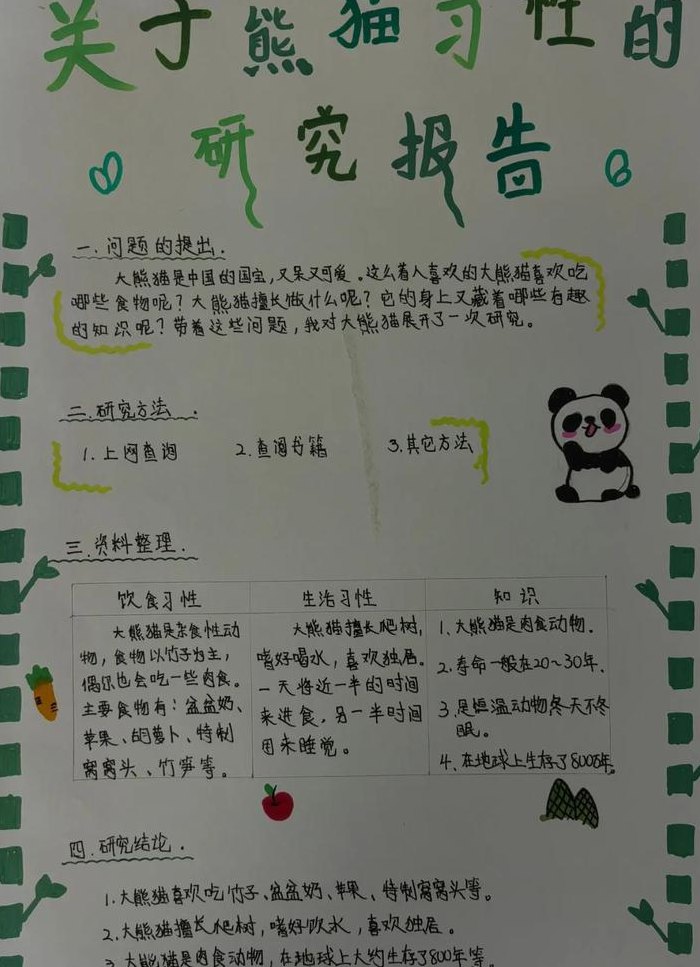 关于熊猫习性的
研究报告
一.问题的提出.
大熊猫是中国的国宝,又呆又可爱。这么着人喜欢的大熊猫喜欢吃
哪些食物呢?大熊猫擅长做什么呢?它的身上又藏着哪些有趣
的知识呢?带着这些问题,我对大熊猫展开了一次研究。
二.研究方法.
1.上网查询 2.查阅书籍 3.其它方法
三.资料整理.
饮食习性 生活习性 知识
大熊猫是杂食性动
物,食物以竹子为主,
偶尔也会吃一些肉食。
主要食物有:盆盆奶、
苹果、胡萝卜、特制
窝窝头、竹笋等。
大熊猫擅长爬树,
嗜好喝水,喜欢独居。
一天将近一半的时间
来进食,另一半时间
用来睡觉。
1.大熊猫是肉食动物.
2.寿命一般在20~30年.
3.是恒温动物冬天不冬
眠.
4.在地球上生存了800万年。
四.研究结论.
1.大熊猫喜欢吃竹子、盆盆奶、苹果、特制窝窝头等。
2.大熊猫擅长爬树,嗜好饮水,喜欢独居。
3.大熊猫是肉食动物,在地球上大约生存了800年等。